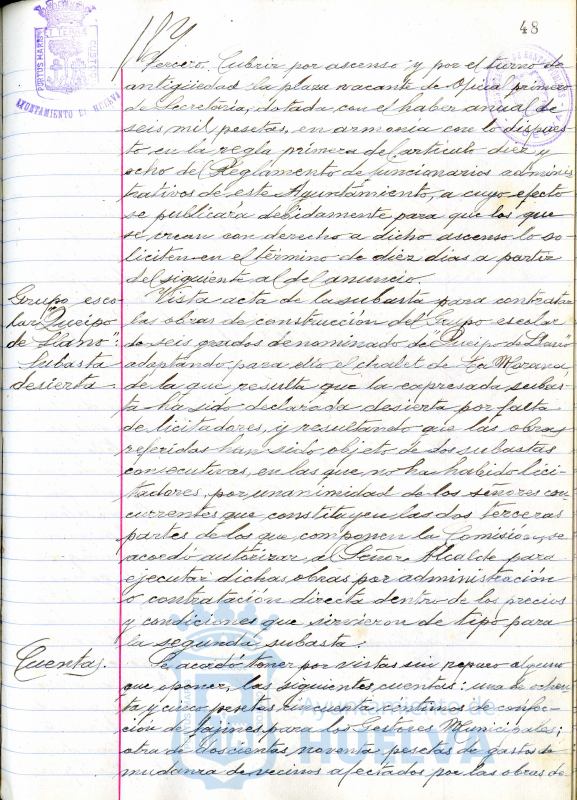 48
PORTUS MARIS
ET TERRE
CUSTODIA
AYUNTAMIENTO DE HUELVA
Tercero. Cubrir por ascenso y por el turno de
antigüedad la plaza vacante de Oficial primero
de Secretaría, dotada con el haber anual de
seis mil pesetas, en armonía con lo dispues-
to en la regla primera del artículo diez y
ocho del Reglamento de funcionarios adminis-
trativos de este Ayuntamiento, a cuyo efecto
se publicará debidamente para que los que
se crean con derecho a dicho ascenso lo so-
liciten en el término de diez días a partir
del siguiente al del anuncio.
Grupo esco-
lar "Queipo
de Llano".
Subasta
desierta.
Vista acta de la subasta para contratar
las obras de construcción del Grupo escolar
de seis grados denominado de "Queipo de Llano"
adaptando para ello el chalet de
de la que resulta que la expresada subas-
ta ha sido declarada desierta por falta
de licitadores, y resultando que las obras
referidas han sido objeto de dos subastas
consecutivas, en las que no ha habido lici-
tadores, por unanimidad de los señores con-
currentes que constituyen las dos terceras
partes de los que componen la Comisión, se
acordó autorizar al Señor Alcalde para
ejecutar dichas obras por administración
o contratación directa dentro de los precios
y condiciones que sirvieron de tipo para
la segunda subasta.
Cuentas.
Se acordó tener por vistas sin reparo alguno
que oponer, las siguientes cuentas: una de ochen-
ta y cinco pesetas cincuenta céntimos de confec-
ción de fajines para los Gestores Municipales;
otra de doscientas noventa pesetas de gastos de
mudanza de vecinos afectados por las obras de
Ayuntamiento de
HUELVA